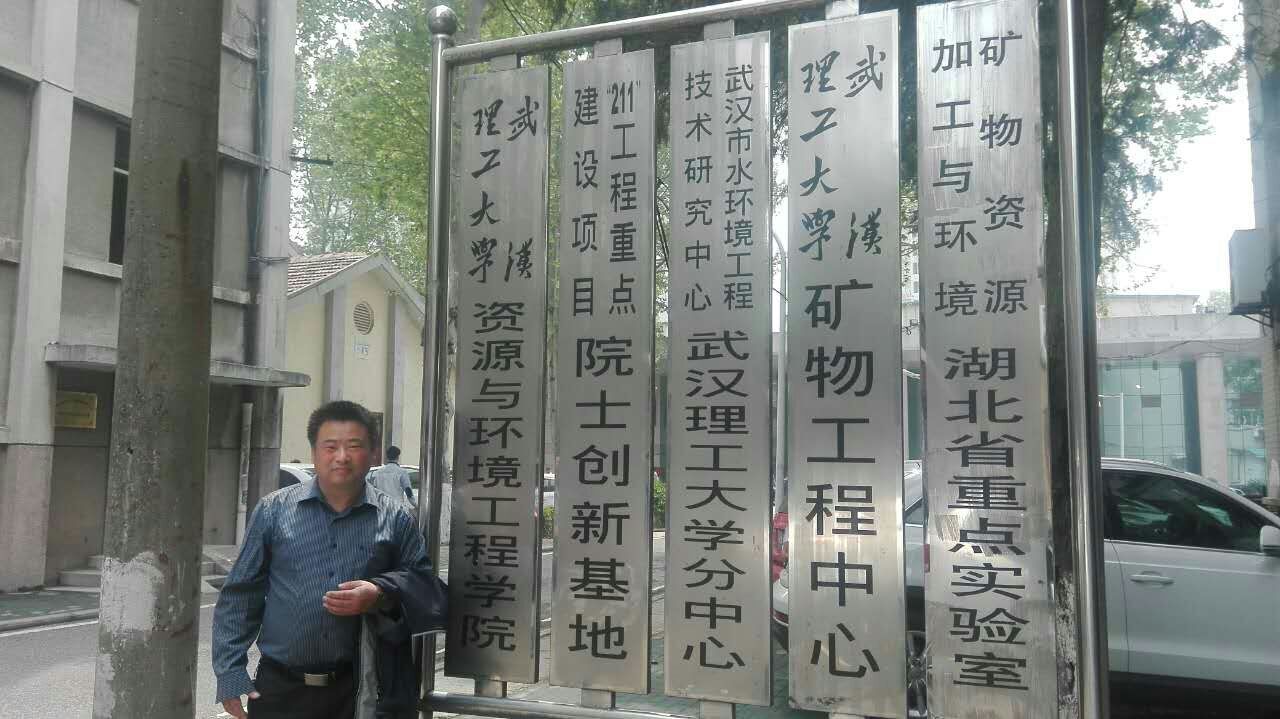 武汉理工大学 资源与环境工程学院
"211"工程重点建设项目 院士创新基地
武汉市水环境工程技术研究中心 武汉理工大学分中心
武汉理工大学 矿物工程中心
矿物资源加工与环境 湖北省重点实验室